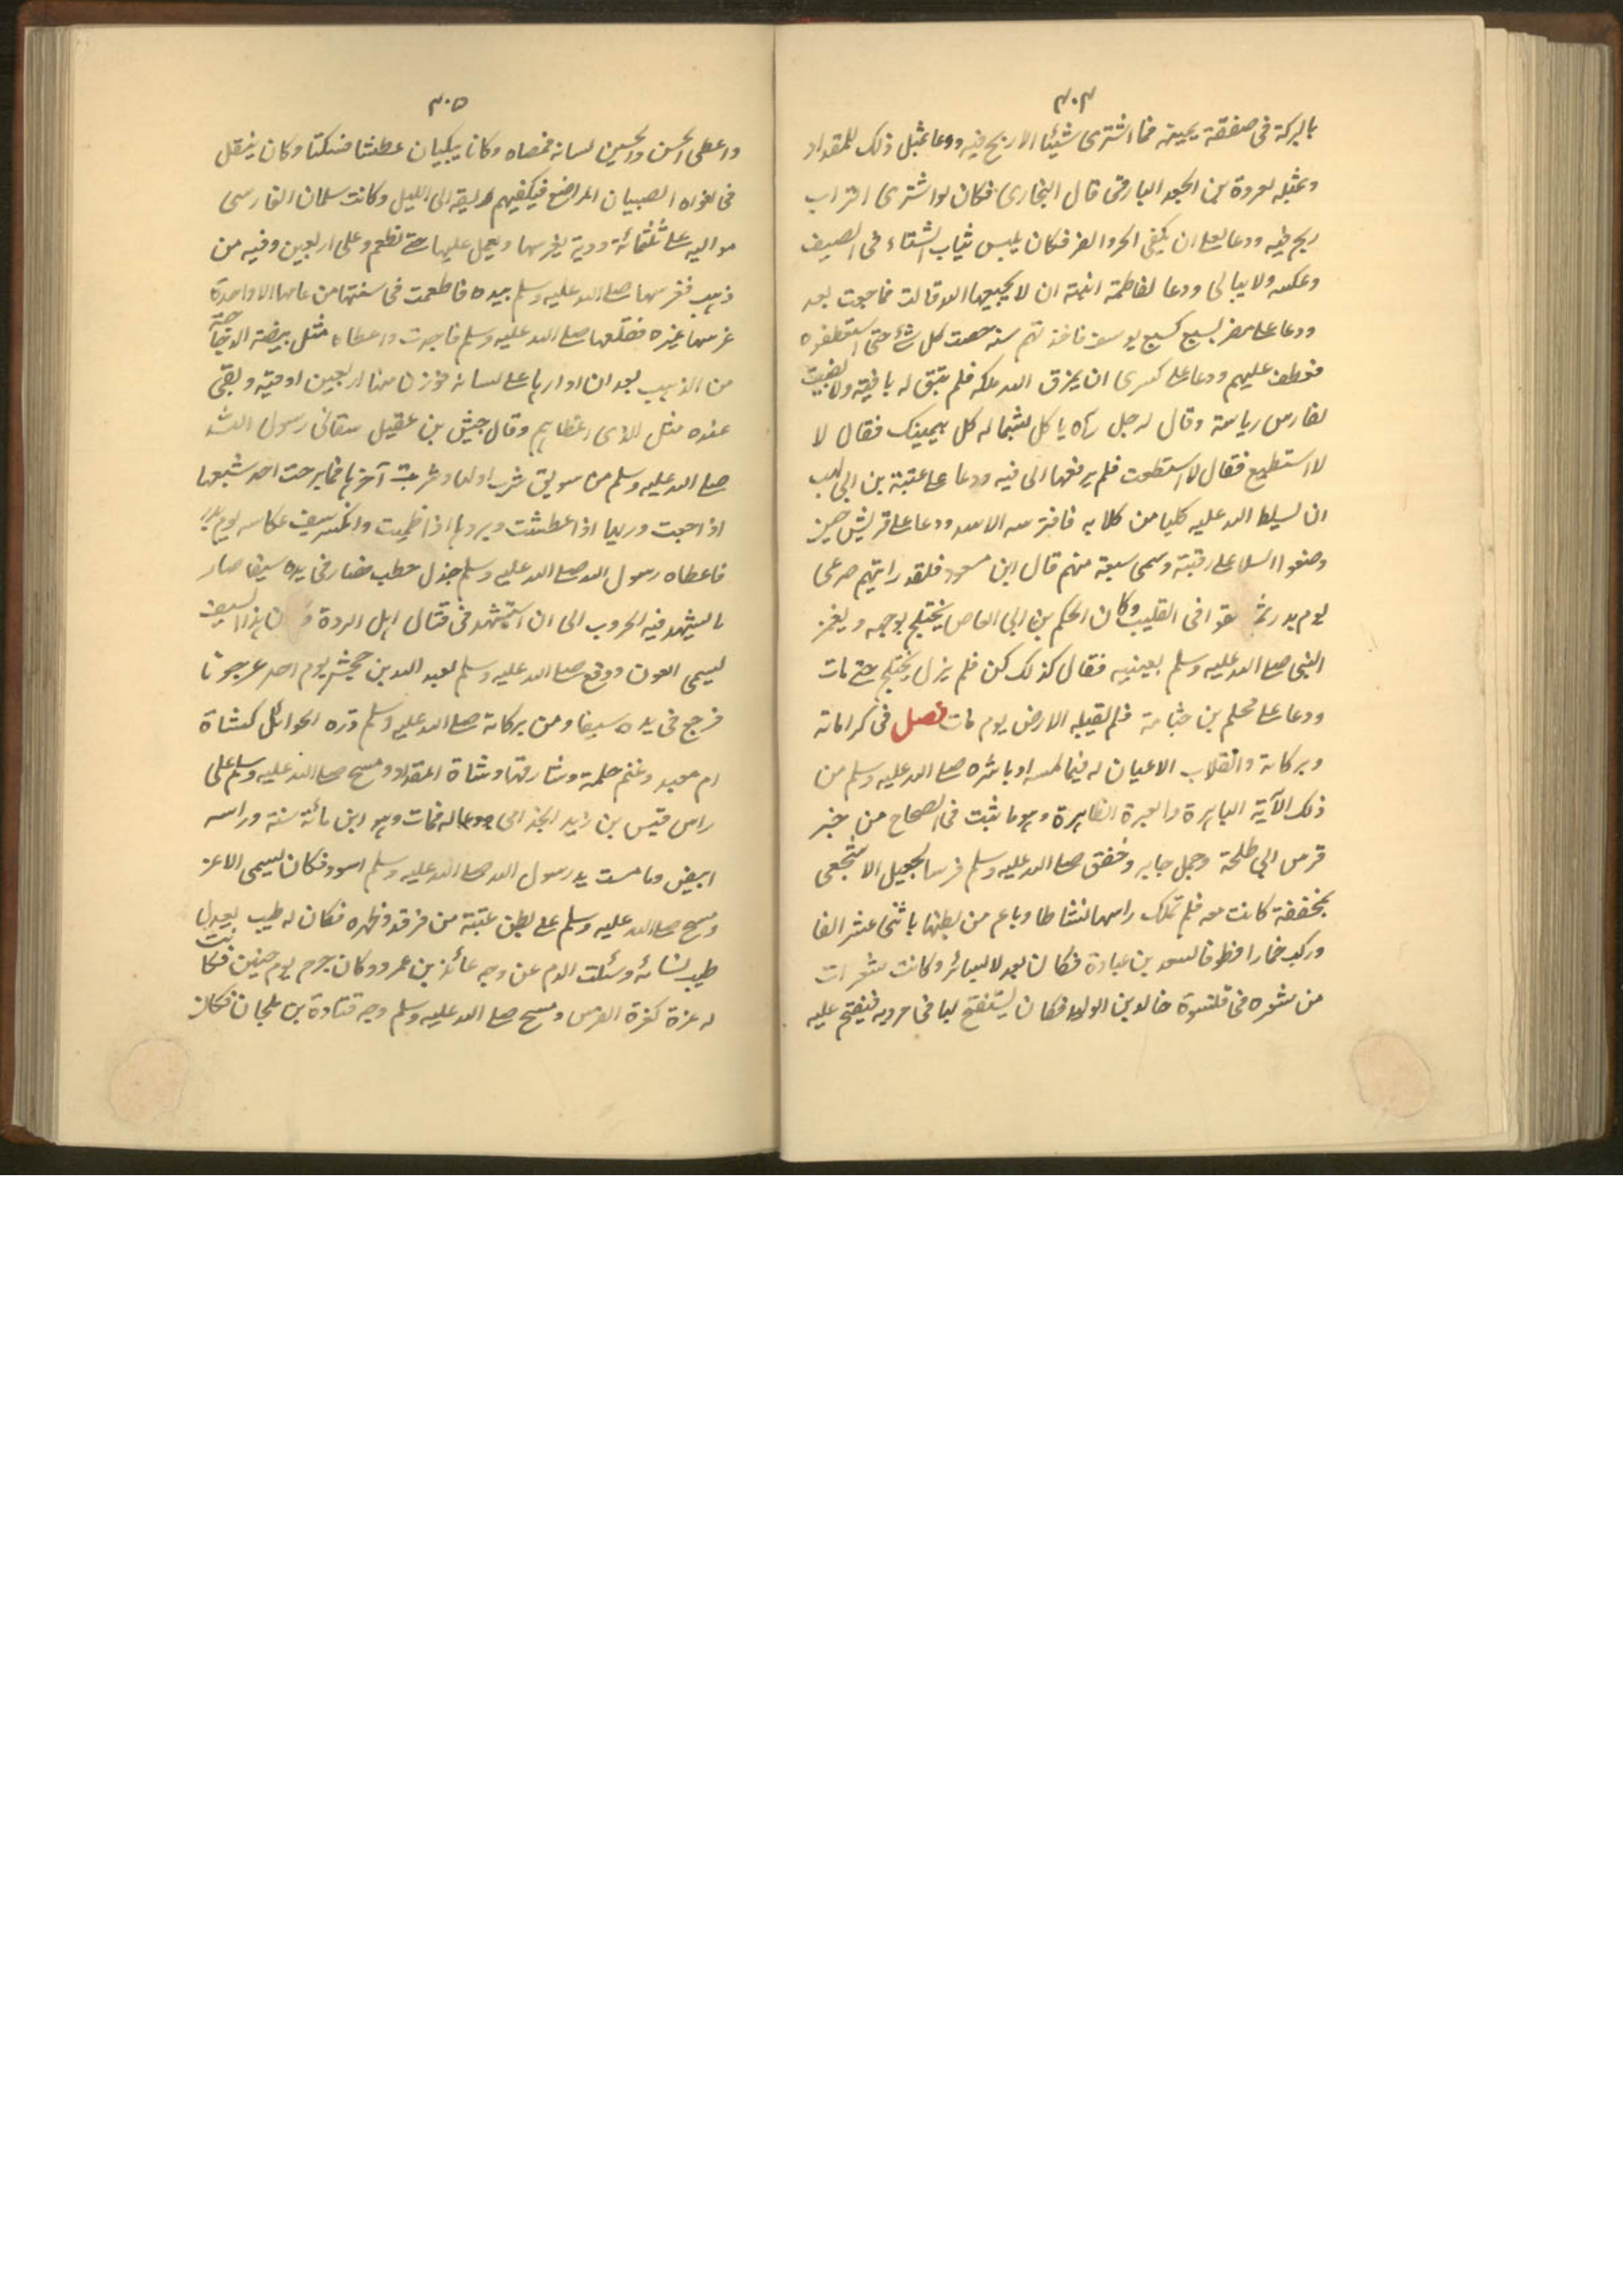 ٣٠٤
بالبركة فى صفقة يمينه فما اشترى شيئا الا ربح فيه ودعا بمثل ذلك للمقداد
وبمثله لعروة بن الجعد البارقى قال البخارى فكان لو اشترى التراب
ربح فيه ودعا لعلى ان يكفى الحر والقر فكان يلبس ثياب الشتاء فى الصيف
وعكسه ولا يبالى ودعا لفاطمة ابنته ان لا يجيعها الله قالت فما جعت بعد
ودعا على مضر بسبع كسبع يوسف فاخذتهم سنة حصت كل شئ حتى استعطفوه
فعطف عليهم ودعا على كسرى ان يمزق الله ملكه فلم تبق له باقية ولا بقيت
لفارس رياسة وقال لرجل رآه ياكل بشماله كل بيمينك فقال لا
لا استطيع فقال لا استطعت فلم يرفعها الى فيه ودعا على عتبة بن ابى لهب
ان يسلط الله عليه كلبا من كلابه فافترسه الاسد ودعا على قريش حين
وضعوا السلا على رقبته وسمى سبعة منهم قال ابن مسعود فلقد رايتهم صرعى
يوم بدر ثم القوا فى القليب وكان الحكم بن ابى العاص يختلج بوجهه ويغمز
النبى صلى الله عليه وسلم بعينيه فقال كذلك كن فلم يزل يختلج حتى مات
ودعا على محلم بن جثامة فلم تقبله الارض يوم مات فصل فى كراماته
وبركاته وانقلاب الاعيان له فيما لمسه او باشره صلى الله عليه وسلم من
ذلك الآية الباهرة والعبرة الظاهرة وهو ما ثبت فى الصحاح من خبر
فرس ابى طلحة وجمل جابر وخفق صلى الله عليه وسلم فرسا لجعيل الاشجعى
بمخفقة كانت معه فلم تملك راسها نشاطا وباع من بطنها باثنى عشر الفا
وركب حمارا قطوفا لسعد بن عبادة فكان بعد لا يساير وكانت شعرات
من شعره فى قلنسوة خالد بن الوليد فكان يستفتح بها فى حروبه فيفتح عليه
٣٠٥
واعطى الحسن والحسين لسانه فمصاه وكانا يبكيان عطشا فسكتا وكان يتفل
فى افواه الصبيان المراضع فيكفيهم ريقه الى الليل وكاتب سلمان الفارسى
مواليه على ثلثمائة ودية يغرسها ويعمل عليها حتى تطعم وعلى اربعين وقية من
ذهب فغرسها صلى الله عليه وسلم بيده فاطعمت فى سنتها من عامها الا واحدة
غرسها غيره فقلعها صلى الله عليه وسلم واعطاه مثل بيضة الدجاجة
من الذهب بعد ان ادارها على لسانه فوزن منها اربعين اوقية وبقى
عنده مثل الذى اعطاهم وقال جيش بن عقيل سقانى رسول الله
صلى الله عليه وسلم من سويق شرب اولها وشربت آخرها فما برحت اجد شبعها
اذا جعت وريها اذا عطشت وبردها اذا ظميت وانكسر سيف عكاسه يوم بدر
فاعطاه رسول الله صلى الله عليه وسلم جذل حطب فصار فى يده سيفا صار
ما يشهد فيه الحروب الى ان استشهد فى قتال اهل الردة هذا السيف
يسمى العون ودفع صلى الله عليه وسلم لعبد الله بن جحش يوم احد عرجونا
فرجع فى يده سيفا ومن بركاته صلى الله عليه وسلم دره الحوائل كشاة
ام معبد وغنم حلمة وشارفها وشاة المقداد ومسح صلى الله عليه وسلم على
راس قيس بن زيد الجذامى ودعا له فمات وهو ابن مائة سنة وراسه
ابيض وما مست يد رسول الله صلى الله عليه وسلم اسود فكان يسمى الاغر
ومسح صلى الله عليه وسلم على بطن عتبة من فرقد وظهره فكان له طيب يعدل
طيب نسائه وسلت الدم عن وجه عائذ بن عمرو وكان جرح يوم حنين فكانت
له غرة كغرة الفرس ومسح صلى الله عليه وسلم وجه قتادة بن ملحان فكان